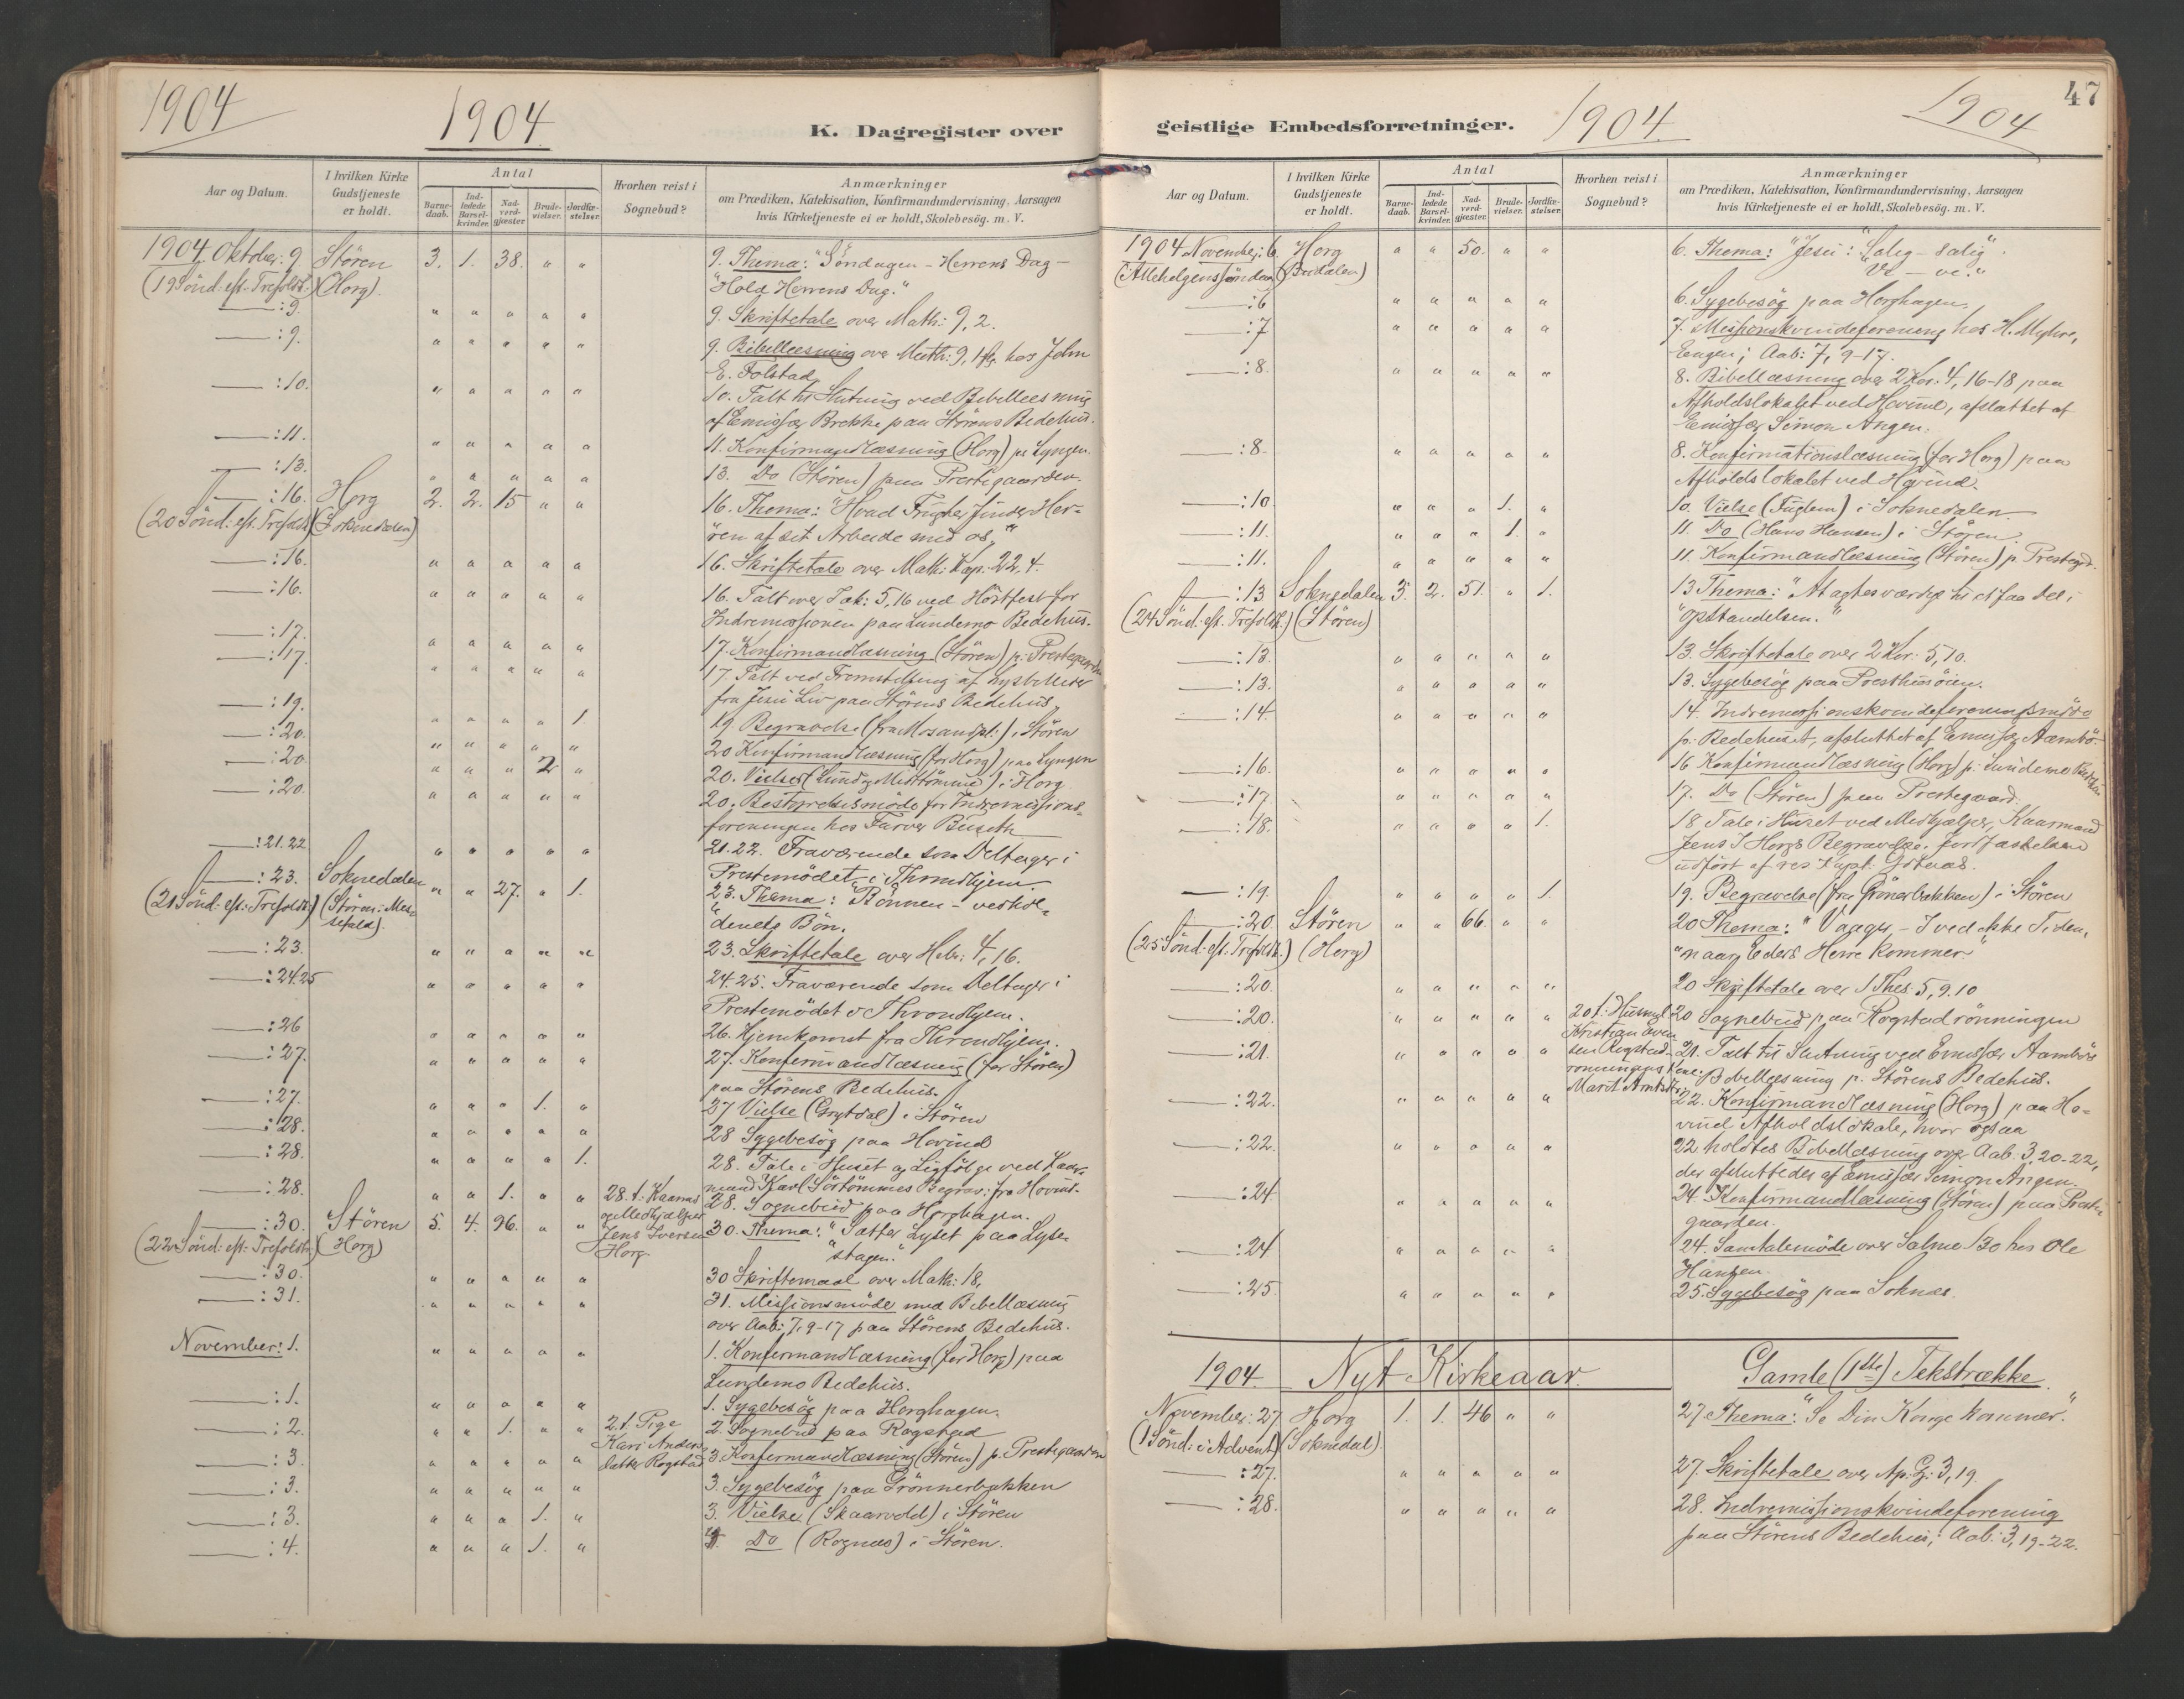 1904
1904.
K. Dagregister over
Aar og Datum.
I hvilken Kirke Gudstjeneste er holdt.
Antal
Barne-daab.
Ind-ledede Barsel-kvinder.
Nad-verd-gjæster.
Brude-vielser.
Jordfæ-stelser.
Hvorhen reist i Sognebud?
Anmærkninger
om Prædiken, Katekisation, Konfirmandundervisning, Aarsagen
hvis Kirketjeneste ei er holdt, Skolebesög. m. V.
1904. Oktober: 9. Stören 3. 1. 38. " " 9. Thema: "Söndagen - Herrens Dag -
(19 Sönd: eft. Trefoldh.) (Horg). "Hold Herrens Dag."
: 9. " " " " " 9. Skriftetale over Math: 9, 2.
: 9. " " " " " 9. Bibellæsning over Math: 9, 1 flg. hos John
E. Folstad
: 10. " " " " " 10. Talt til Slutning ved Bibellæsning
af Emissær Brekke paa Störens Bedehus.
: 11. " " " " " 11. Konfirmandlæsning (Horg) paa Lyngen.
: 13. " " " " " 13. Do (Stören) paa Prestegaarden.
: 16. Horg 2. 2. 15 " " 16. Thema: "Hvad Frugter finder Her=
(20 Sönd: eft. Trefoldh.) (Soknedalen) "ren af sit Arbeide med os."
: 16. " " " " " 16. Skriftetale over Math: Kap. 22, 4.
: 16. " " " " " 16. Talt over Jak: 5, 16 ved Höstfest for
Indremissionen paa Lundemo Bedehus.
: 17. " " " " " 17. Konfirmandlæsning (Stören) p. Prestegaarden
: 17. " " " " " 17. Talt ved Fremstilling af Lysbilleder
fra Jesu Liv paa Störens Bedehus.
: 19. " " " " 1. 19. Begravelse (fra Mosandpl.) i Stören
: 20. " " " " " 20 Konfirmandlæsning (for Horg) paa Lyngen
: 20 " " " 2 " 20. Vielser (Lund og Midttömme) i Horg
: 20. " " " " " 20. Bestyrelsesmöde for Indremissions=
foreningen hos Farver Buseth
: 21. 22. " " " " " 21. 22. Fraværende som Deltager i
Prestemödet i Throndhjem.
: 23. Soknedalen " " 27. " 1. 23. Thema: "Bönnen - vedhol=
(21 Sönd: eft: Trefoldh:) (Stören: Mes= "dende Bön.
sefald).
: 23. " " " " " 23. Skriftetale over Hebr: 4, 16.
: 24. 25 " " " " " 24. 25. Fraværende som Deltager i
Prestemödet i Throndhjem.
: 26 " " " " " 26. Hjemkomst fra Throndhjem.
: 27. " " " " " 27. Konfirmandlæsning (for Stören)
paa Störens Bedehus.
: 27. " " " 1. " 27 Vielse (Grytdal) i Stören
: 28. " " " " " 28 Sygebesög paa Hovind
: 28. " " " " 1. 28. Tale i Huset og Ligfölge ved Kaar=
mand Karl Sörtömmes Begrav: fra Hovind.
: 28. " " 1. " " 28. t. Kaarmd og Medhjælper Jens Iversen Horg 28. Sognebud paa Horghagen.
: 30. Stören 5. 4. 96. " " 30. Thema: "Sætter Lyset paa Lyse=
(22 Sönd: eft: Trefoldh:) (Horg) "stagen."
: 30. " " " " " 30 Skriftemaal over Math: 18,
: 31. " " " " " 31. Missionsmöde med Bibellæsning
over Aab: 7, 9-17 paa Störens Bedehus.
November: 1. " " " " " 1. Konfirmandlæsning (for Horg) paa
Lundemo Bedehus.
: 1. " " " " " 1. Sygebesög paa Horghagen.
: 2. " " 1. " " 2 t. Pige Kari Anders datter Rogstad 2. Sognebud paa Rogstad
: 3. " " " " " 3. Konfirmandlæsning (Stören) p. Prestegaarden
: 3. " " " " " 3. Sygebesög paa Grönnerbakken
: 3. " " " 1. " 3. Vielse (Skaarvold) i Stören
: 4. " " " 1. " 4. Do (Rognæs) i Stören.
47
geistlige Embedsforretninger.
1904.
1904
Aar og Datum.
I hvilken Kirke Gudstjeneste er holdt.
Antal
Barne-daab.
Ind-ledede Barsel-kvinder.
Nad-verd-gjæster.
Brude-vielser.
Jordfæ-stelser.
Hvorhen reist i Sognebud?
Anmærkninger
om Prædiken, Katekisation, Konfirmandundervisning, Aarsagen
hvis Kirketjeneste ei er holdt, Skolebesög. m. V.
1904. November: 6. Horg " " 50. " " 6. Thema: "Jesu: "Salig - salig".
(Allehelgenssöndag) (Budalen) "Ve - ve."
: 6 " " " " " 6. Sygebesög paa Horghagen.
: 7 " " " " " 7. Missionskvindeforening hos H. Myhre,
Engen; Aab: 7, 9-17.
: 8. " " " " " 8. Bibellæsning over 2 Kor. 4, 16-18 paa
Afholdslokalet ved Hovind, afsluttet af
Emissær Simon Angen.
: 8. " " " " " 8. Konfirmationslæsning (for Horg) paa
Afholdslokalet ved Hovind.
: 10. " " " 1. " 10. Vielse (Fuglem) i Soknedalen
: 11. " " " 1. " 11. Do (Hans Hansen) i Stören
: 11. " " " " " 11. Konfirmandlæsning (Stören) p. Prestegrd.
: 13 Soknedalen 3. 2. 51. " 1. 13 Thema: "At agtes værdig til at faa Del i
(24 Sönd. eft. Trefoldh.) (Stören) "Opstandelsen."
: 13. " " " " " 13. Skriftetale over 2 Kor: 5, 10.
: 13. " " " " " 13. Sygebesög paa Presthusöien.
: 14. " " " " " 14. Indremissionskvindeforeningsmöde
p. Bedehuset, afsluttet af Emissær Aambö.
: 16. " " " " " 16 Konfirmandlæsning (Horg) p. Lundemo Bedehus
: 17. " " " " " 17. Do (Stören) paa Prestegaard.
: 18. " " " " 1. 18 Tale i Huset ved Medhjælper, Kaarmand
Jens I Horgs Begravelse. Jordfæstelsen
udfört af res. Kapl.
: 19. " " " " 1. 19. Begravelse (fra Grönerbakken) i Stören
: 20. Stören " " 66. " " 20 Thema: "Vaager - I ved ikke Tiden,
(25 Sönd. eft. Trefoldh.) (Horg) "naar Eders Herre kommer."
: 20. " " " " " 20 Skriftetale over 1 Thes. 5, 9. 10
: 20. " " " " " 20 t. Husmd Kristian Even sen Rogstad rönningens Kone. Marit Arntsdtr. 20 Sognebud paa Rogstadrönningen
: 21. " " " " " 21. Talt til Slutning ved Emissær Aambös
Bibellæsning p. Störens Bedehus.
: 22. " " " " " 22. Konfirmandlæsning (Horg) paa Ho=
vind Afholdslokale, hvor ogsaa
: 22. " " " " " 22 holdtes Bibellæsning over Aab. 3, 20-22,
der afsluttedes af Emissær Simon Angen.
: 24 " " " " " 24. Konfirmandlæsning (Stören) paa Preste=
gaarden.
: 24 " " " " " 24. Samtalemöde over Salme 130 hos Ole
Hansen.
: 25. " " " " " 25. Sygebesög paa Soknæs.
1904. Nyt Kirkeaar. Gamle (1ste) Tekstrække.
November: 27. Horg 1. 1. 46 " " 27. Thema: "Se Din Konge kommer."
(1 Sönd: i Advent) (Soknedal).
: 27. " " " " " 27. Skriftetale over Ap. G: 3, 19.
: 28. " " " " " 28. Indremissionskvindeforening
paa Störens Bedehus; Aab: 3, 19-22.